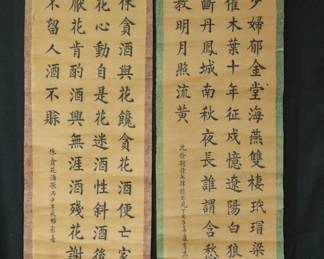 少婦郁金堂海燕雙棲玳瑁梁
催木葉十年征戍憶遼陽白狼
斷丹鳳城南秋夜長誰謂含愁
教明月照流黃
休貪酒與花饞貪花酒便亡家
花心動自是花迷酒性斜酒後
厭花肯酌酒興無涯酒殘花謝
不留人酒不賒